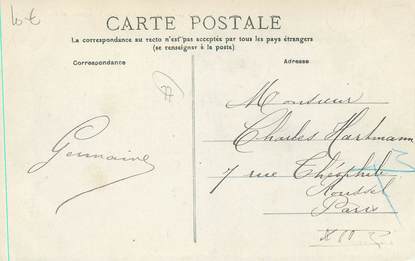 10 €
CARTE POSTALE
La correspondance au recto n'est pas acceptée par tous les pays étrangers
(se renseigner à la poste)
Correspondance
Adresse
77
Germaine
Monsieur
Charles Hartmann
7 rue Théophile
Roussel
Paris